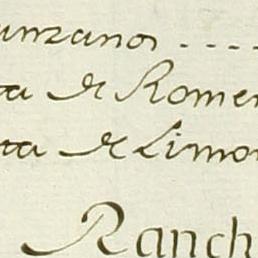 unzanos ....
ta de Romer
ta de Limo
Ranch